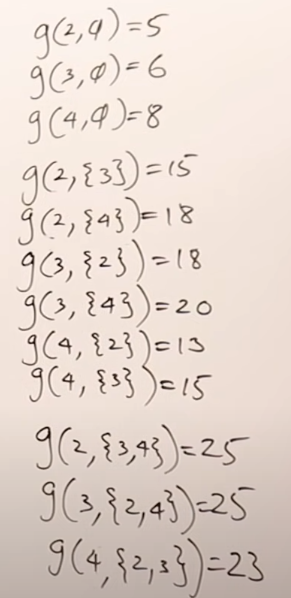 g(2,φ)=5
g(3,φ)=6
g(4,φ)=8
g(2,{3})=15
g(2,{4})=18
g(3,{2})=18
g(3,{4})=20
g(4,{2})=13
g(4,{3})=15
g(2,{3,4})=25
g(3,{2,4})=25
g(4,{2,3})=23